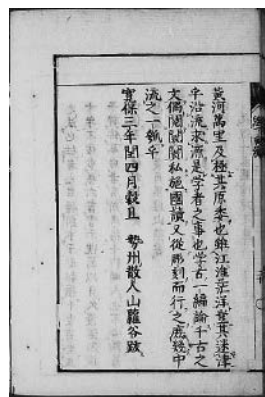 黄河萬里及極其原委也雖江淮茫洋竟其迷津
乎沿流求源是學者之事也學古一編論千古之
文偶閱閱閱私施國讀又從彫刻而行之庶幾中
流之一瓠乎
寛保三年閏四月穀旦　勢州散人山蘿谷跋